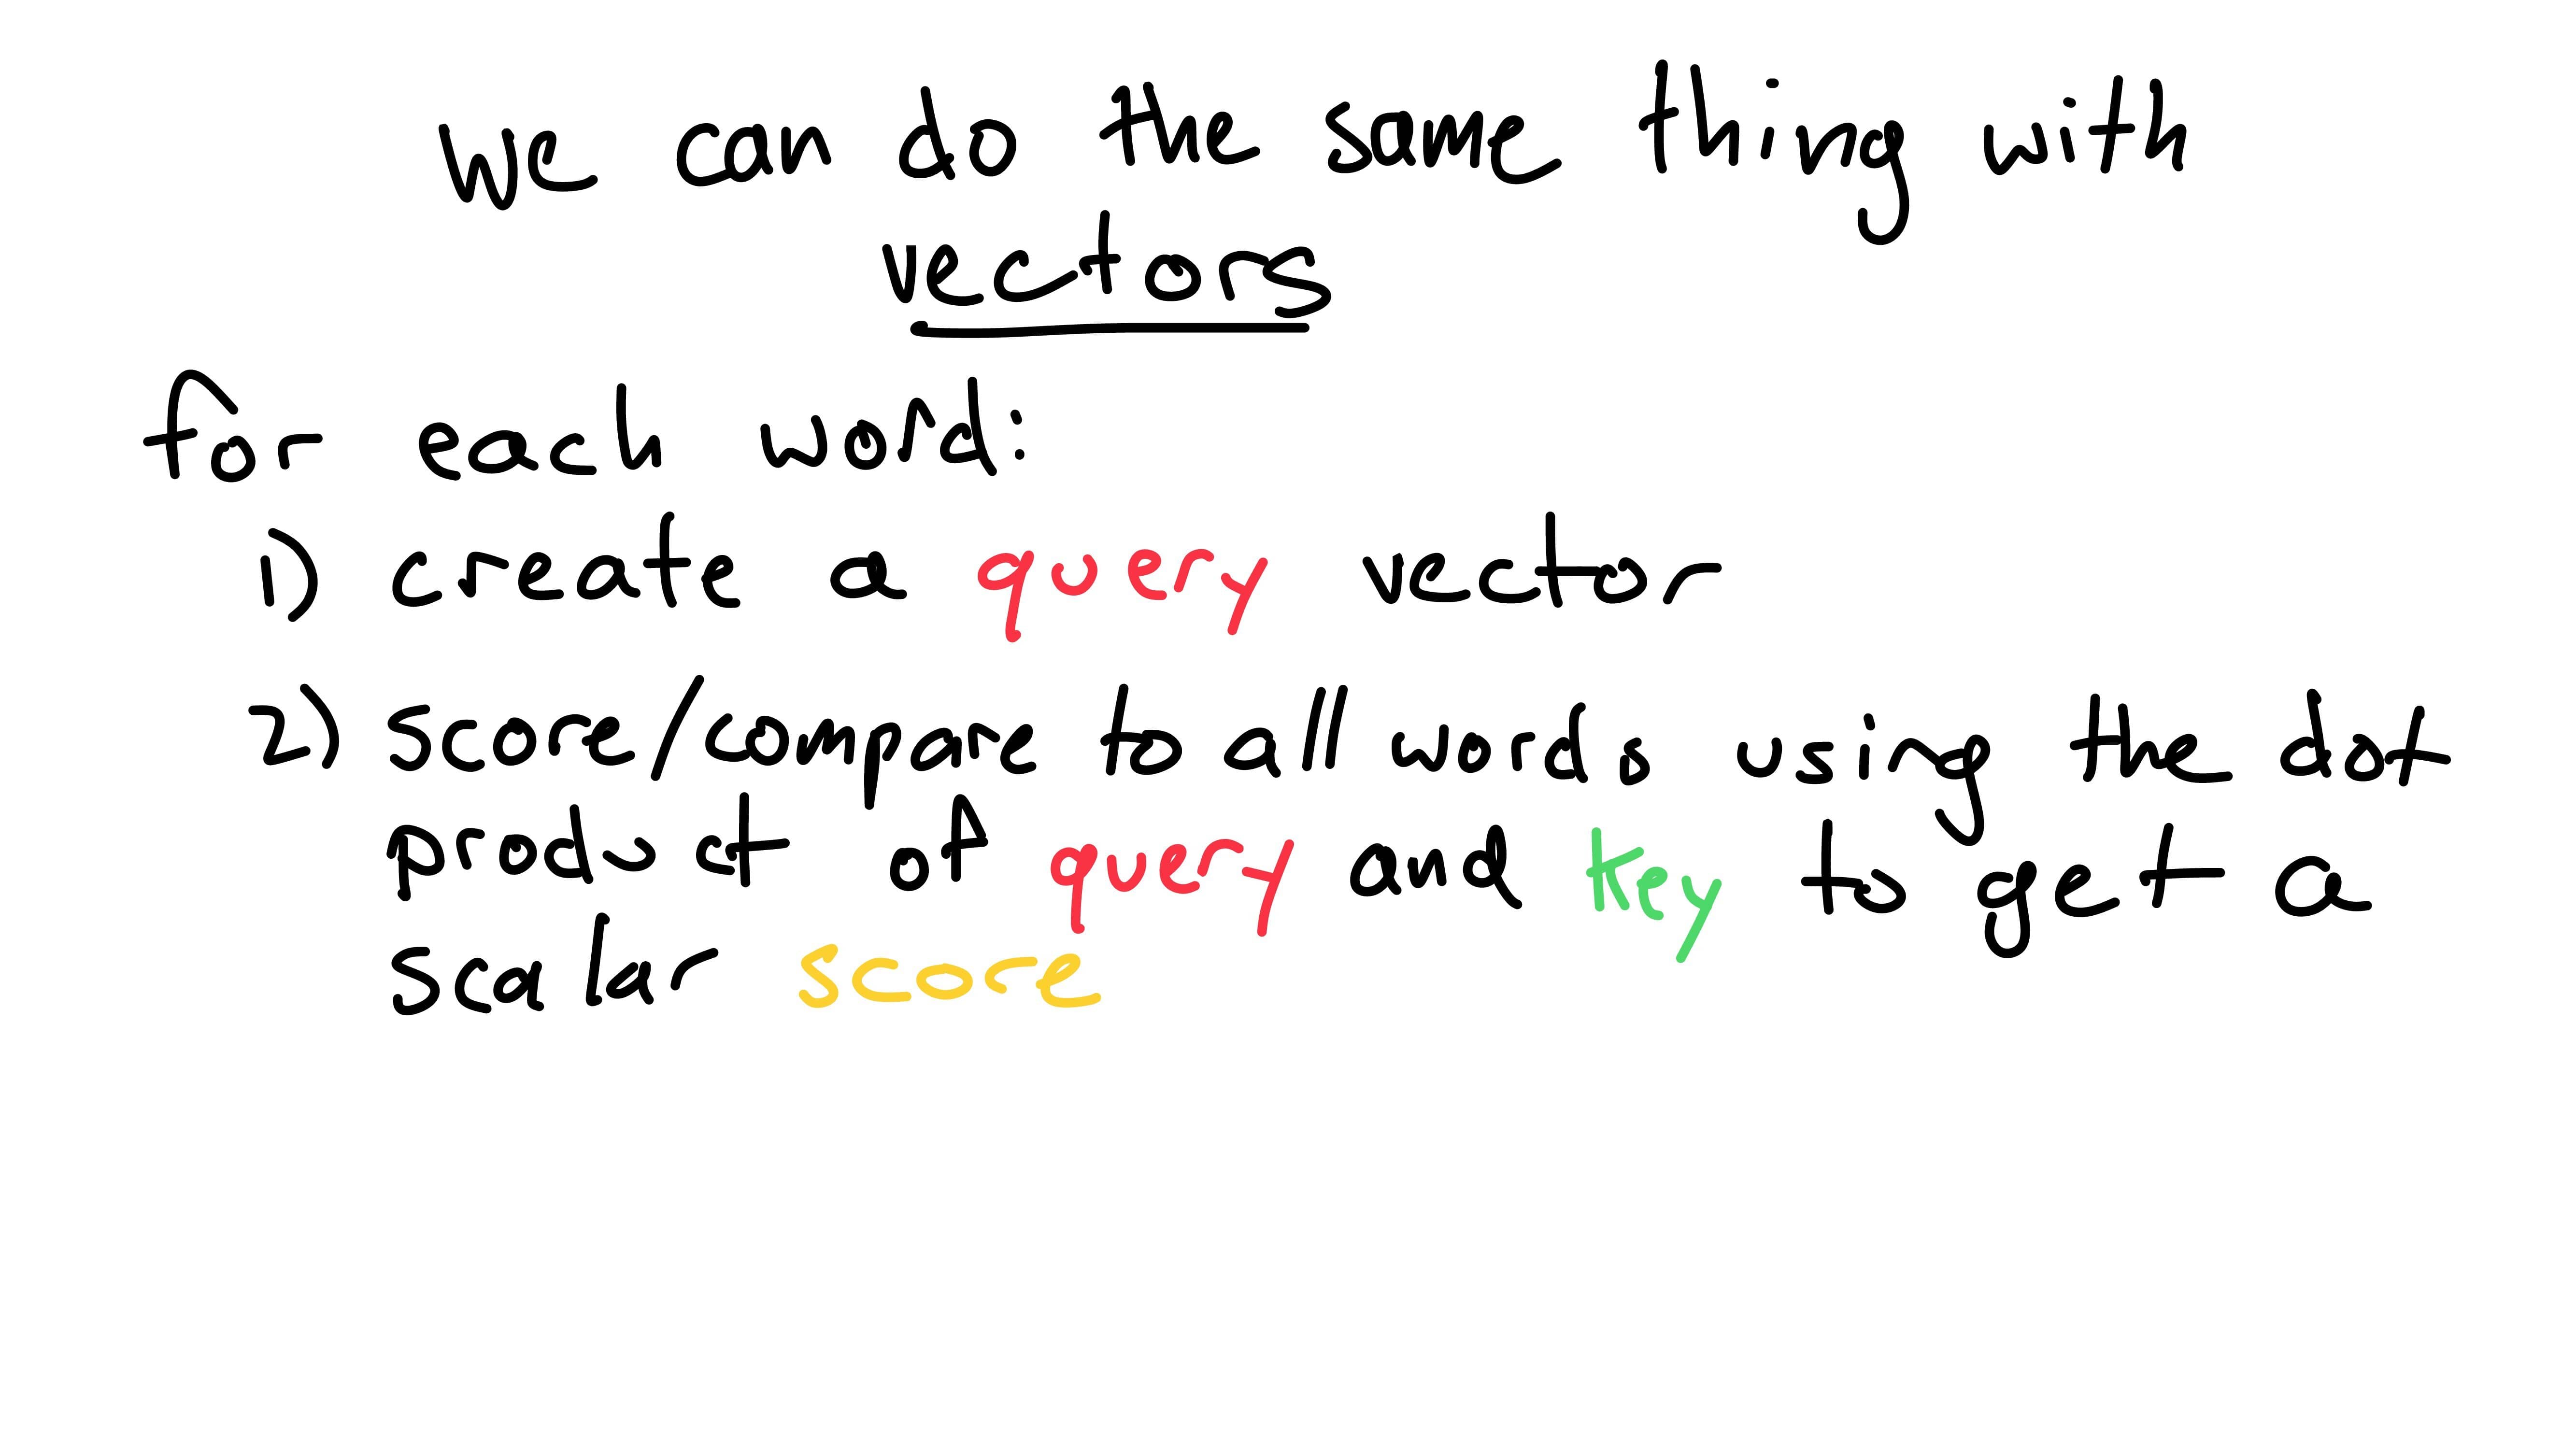 We can do the same thing with
vectors
for each word:
1) create a query vector
2) score/compare to all words using the dot
product of query and key to get a
scalar score